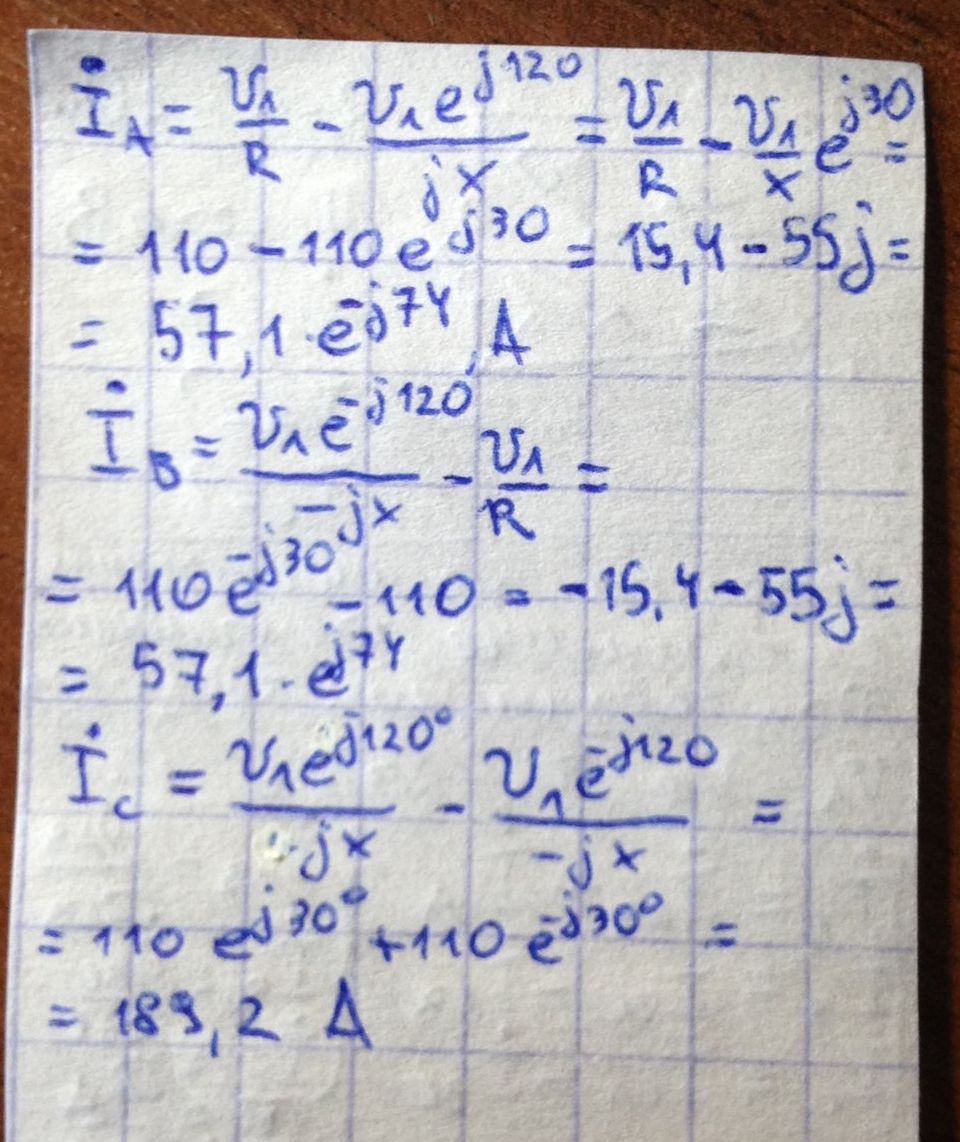 İ_A = U₁/R - U₁e^{j120}/jX = U₁/R - U₁/X e^{j30} =
= 110 - 110 e^{j30} = 15,4 - 55j =
= 57,1·e^{-j74}, A
İ_B = U₁e^{-j120}/-jX - U₁/R =
= 110 e^{-j30} - 110 = -15,4 - 55j =
= 57,1·e^{j74}
İ_C = U₁e^{j120°}/jX - U₁e^{-j120}/-jX =
= 110 e^{j30°} + 110 e^{-j30°} =
= 189,2 A